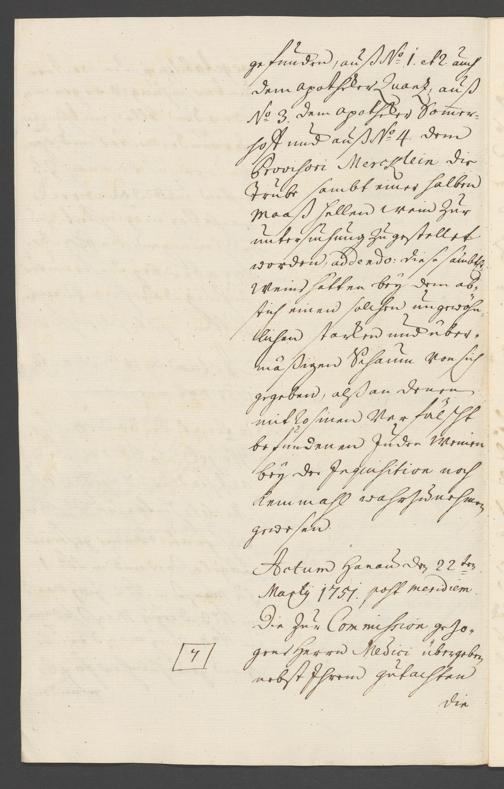 gefunden, auß No. 1. et 2 auch
dem Apotheker Quantz, auß
No. 3. dem Apotheker Sommer-
hoff und auß No. 4 dem
Provisori Mercklein die
Trübe sambt einer halben
Maaß hellen Wein zur
untersuchung zugestellet
worden, addendo: diese sämbtl.
Weine hätten bey dem ab-
stich einen solchen ungewöhn
lichen starken und über-
mäßigen Schaum von sich
gegeben, alß an denen
mit Rosinen Verfälscht
befundenen Juden Weinen
bey der Inquisition noch
keinmahl wahrzunehmen
gewesen.
Actum Hanau den 22ten
Martij 1751. post meridiem.
Die zur Commission gezo-
gene Herrn Medici übergeben
nebst Ihrem gutachten
die
7